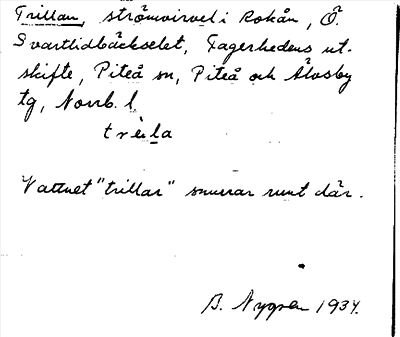 Trillan, strömvirvel i Rokån, Ö.
Svartlidbäckselet, Fagerhedens ut-
skifte, Piteå sn, Piteå och Älvsby
tg, Norrb. l.
trila
Vattnet "trillar" snurrar runt där.
B. Nygren 1934.